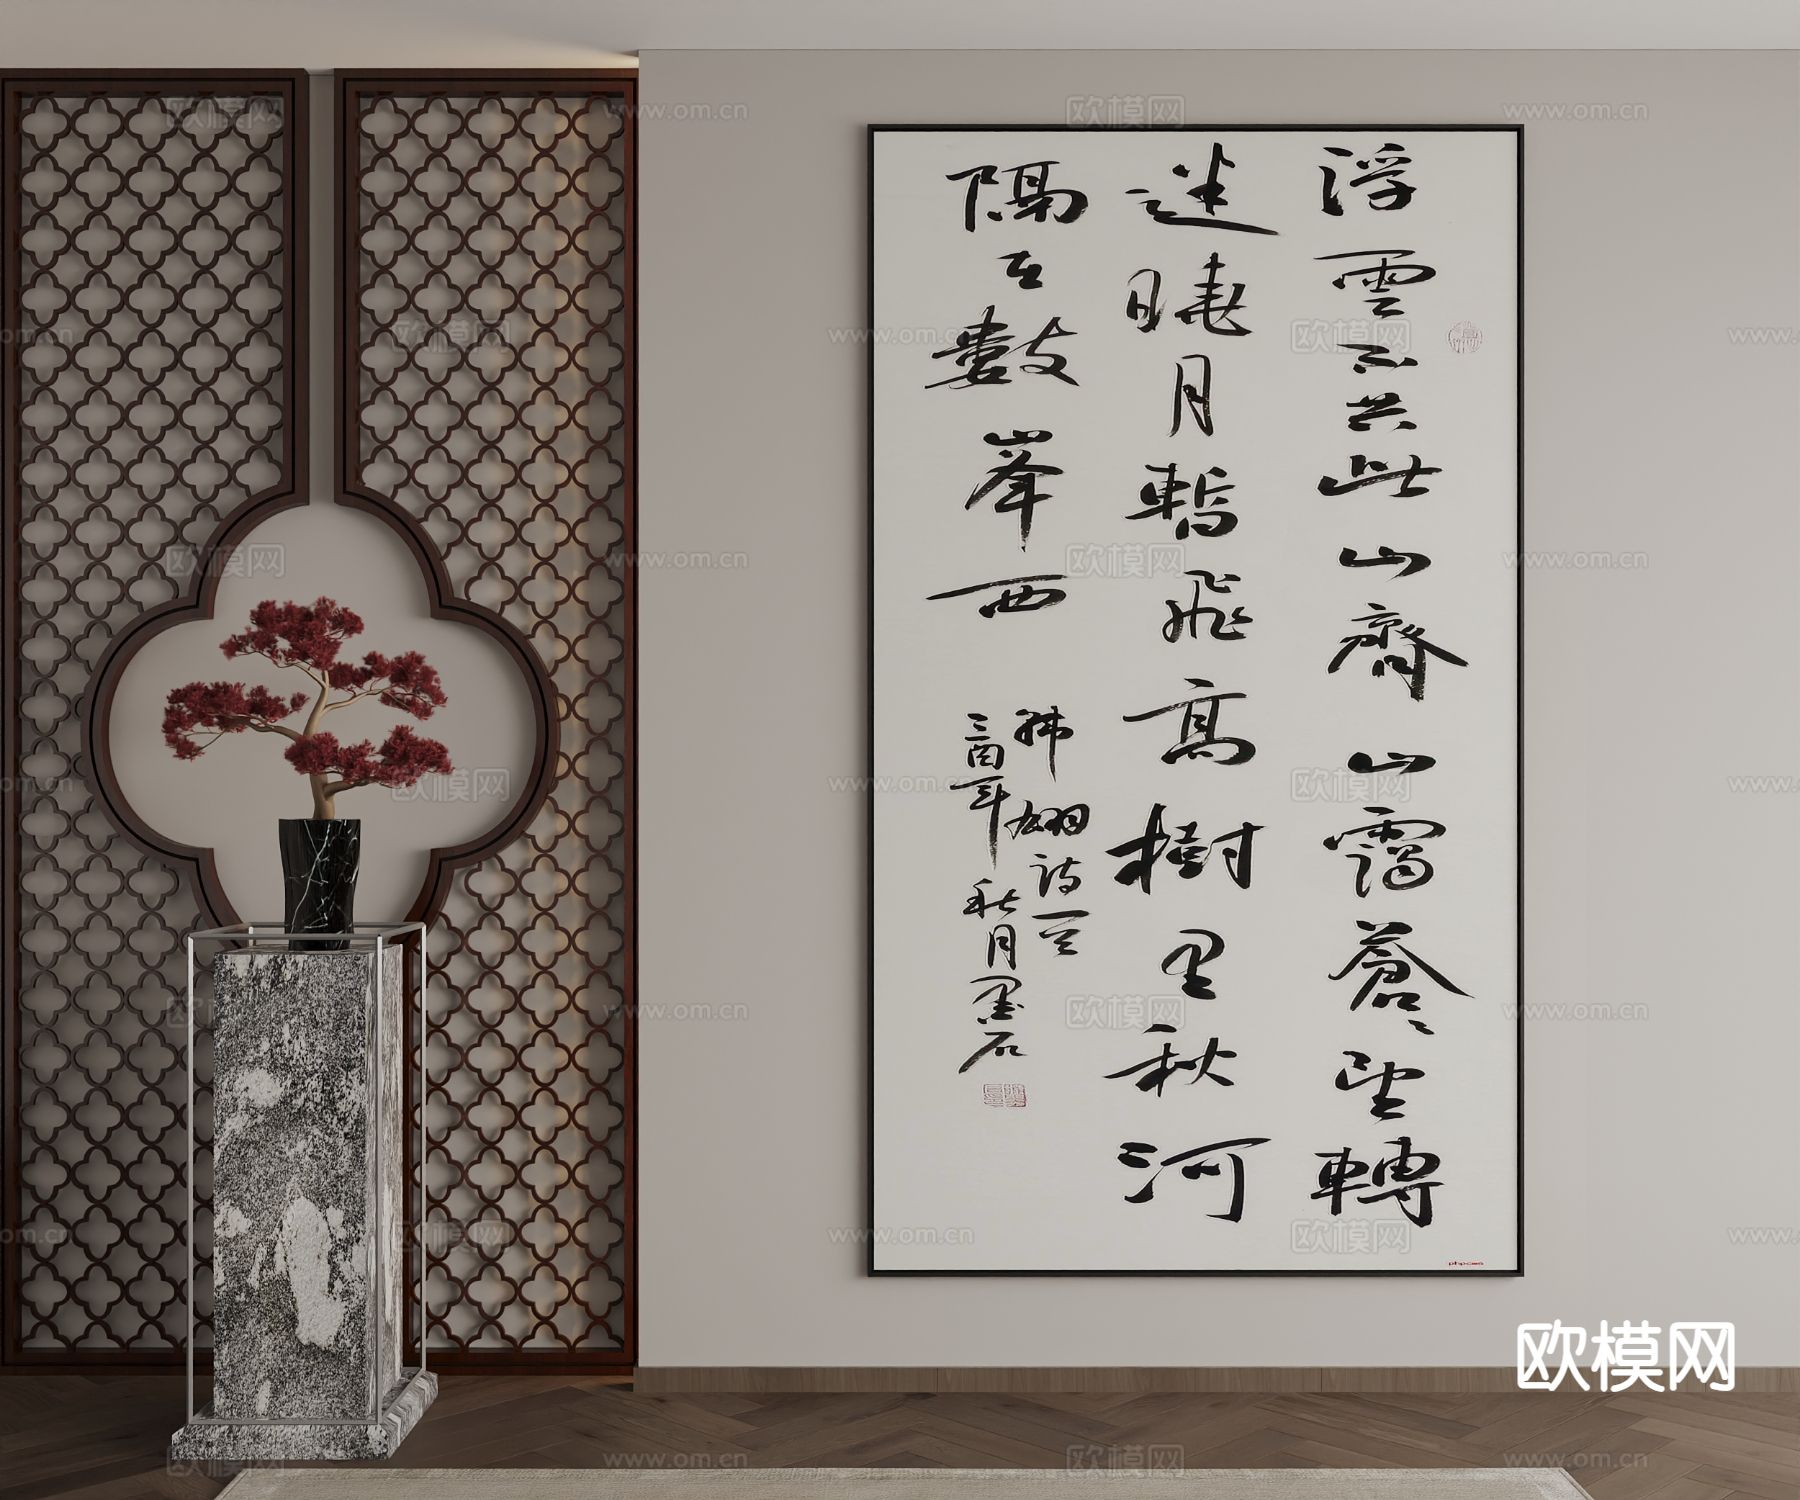 浮雲不共此山齊山靄蒼蒼望轉
迷曉月暫飛高樹里秋河
隔在數峯西
韩翃詩一首
酉年秋月墨石
欧模网
www.om.cn